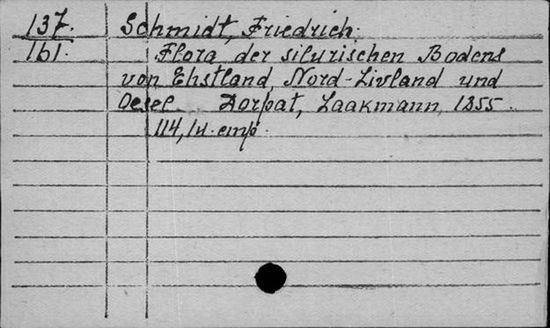 137. Schmidt, Friedrich.
161. Flora der silurischen Bodens
von Ehstland Nord-Livland und
Oesel Dorpat, Laakmann, 1855.
114, 1 н. стр.